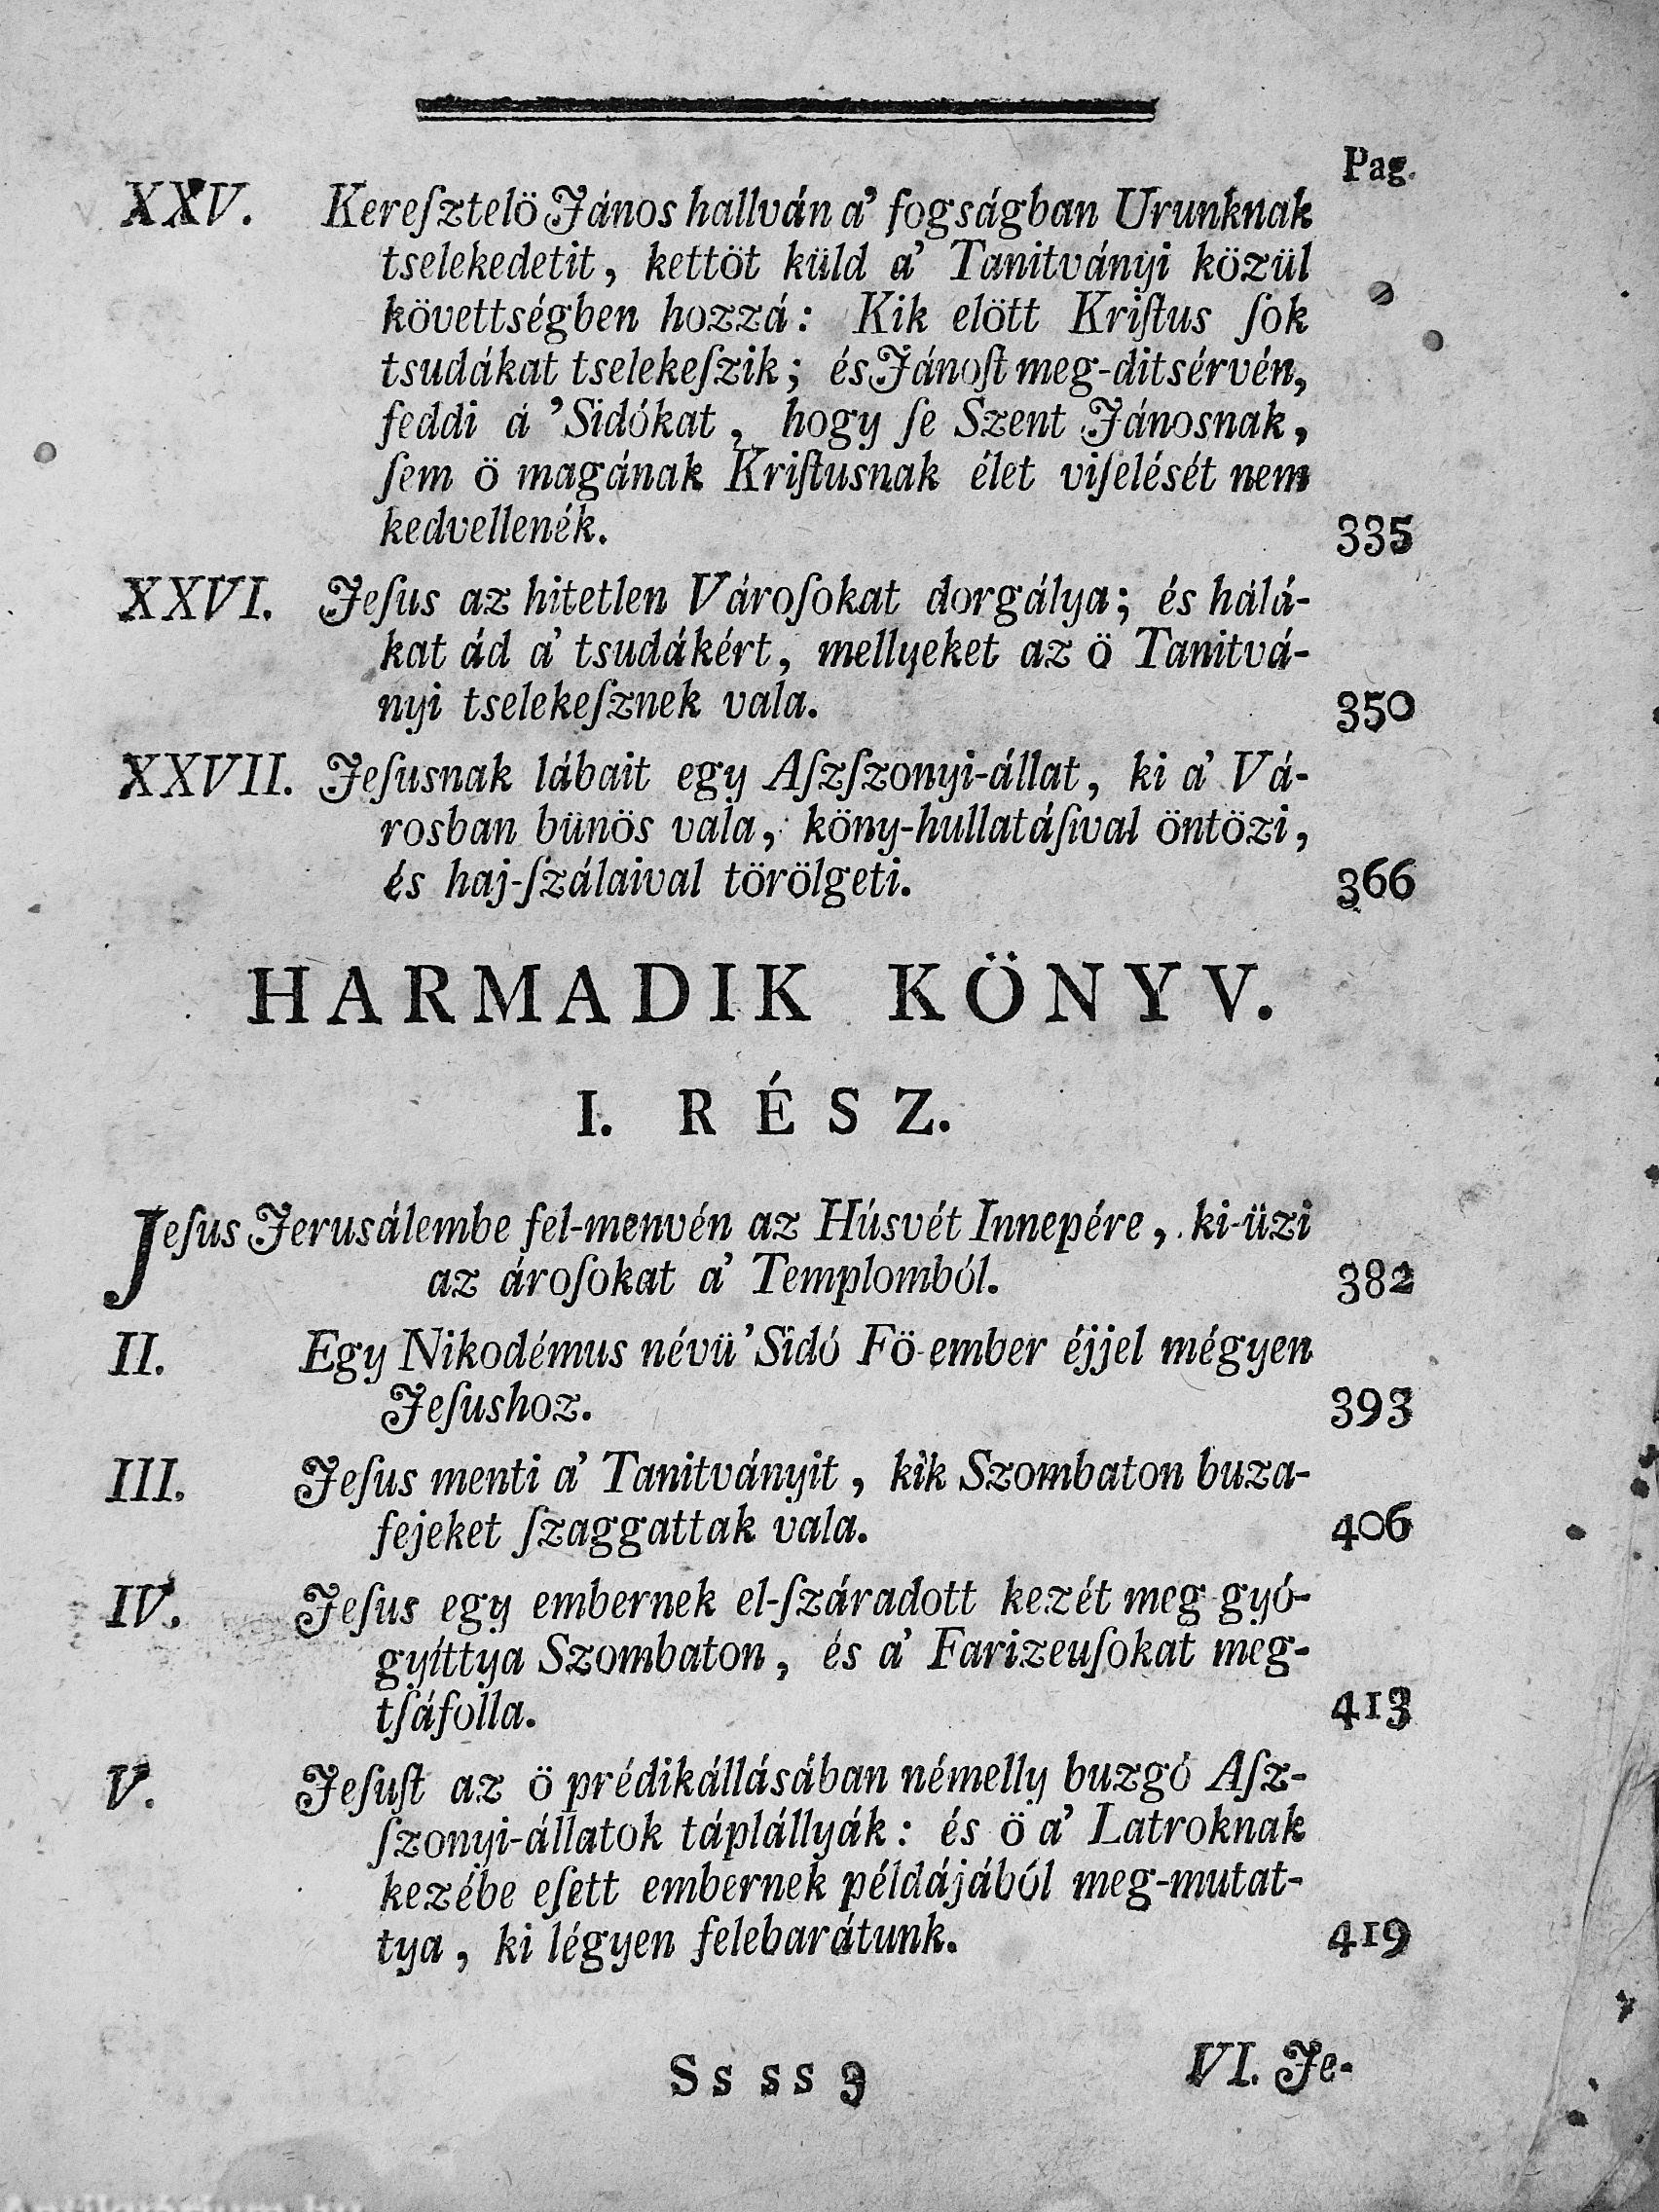 Pag.
XXV. Kereſztelö János hallván a' fogságban Urunknak
tselekedetit, kettöt küld a' Tanitványi közül
követtségben hozzá: Kik elött Kriſtus ſok
tsudákat tselekeſzik; és Jánoſt meg-ditsérvén,
feddi á 'Sidókat, hogy ſe Szent Jánosnak,
ſem ö magának Kriſtusnak élet viſelését nem
kedvellenék. 335
XXVI. Jeſus az hitetlen Városokat dorgálya; és hálá-
kat ád a' tsudákért, mellyeket az ö Tanitvá-
nyi tselekeſznek vala. 350
XXVII. Jeſusnak lábait egy Aſzſzonyi-állat, ki a' Vá-
rosban bünös vala, köny-hullatáſival öntözi,
és haj-ſzálaival törölgeti. 366
HARMADIK KÖNYV.
I. RÉSZ.
Jeſus Jerusálembe fel-menvén az Húsvét Innepére, ki-üzi
azároſokat a' Templomból. 382
II. Egy Nikodémus névü 'Sidó Fö-ember éjjel mégyen
Jeſushoz. 393
III. Jeſus menti a' Tanitványit, kik Szombaton buza-
fejeket ſzaggattak vala. 406
IV. Jeſus egy embernek el-ſzáradott kezét meg-gyó-
gyíttya Szombaton, és a' Farizeuſokat meg-
tſáfolla. 413
V. Jeſuſt az ö prédikállásában némelly buzgó Aſz-
ſzonyi-állatok táplállyák: és ö a' Latroknak
kezébe eſett embernek példájából meg-mutat-
tya, ki légyen felebarátunk. 419
Ss ss 3 VI. Je-